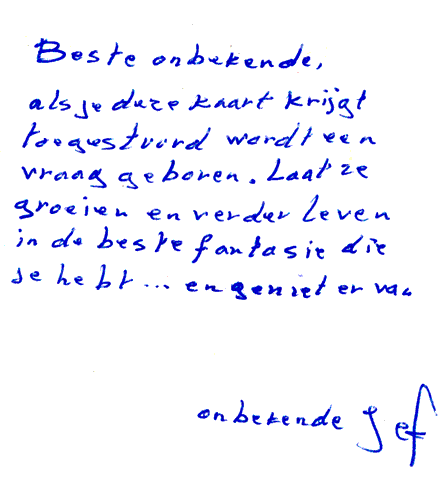 Beste onbekende,
als je deze kaart krijgt
toegestuurd wordt een
vraag geboren. Laat ze
groeien en verder leven
in de beste fantasie die
je hebt... en geniet er van
onbekende Jef